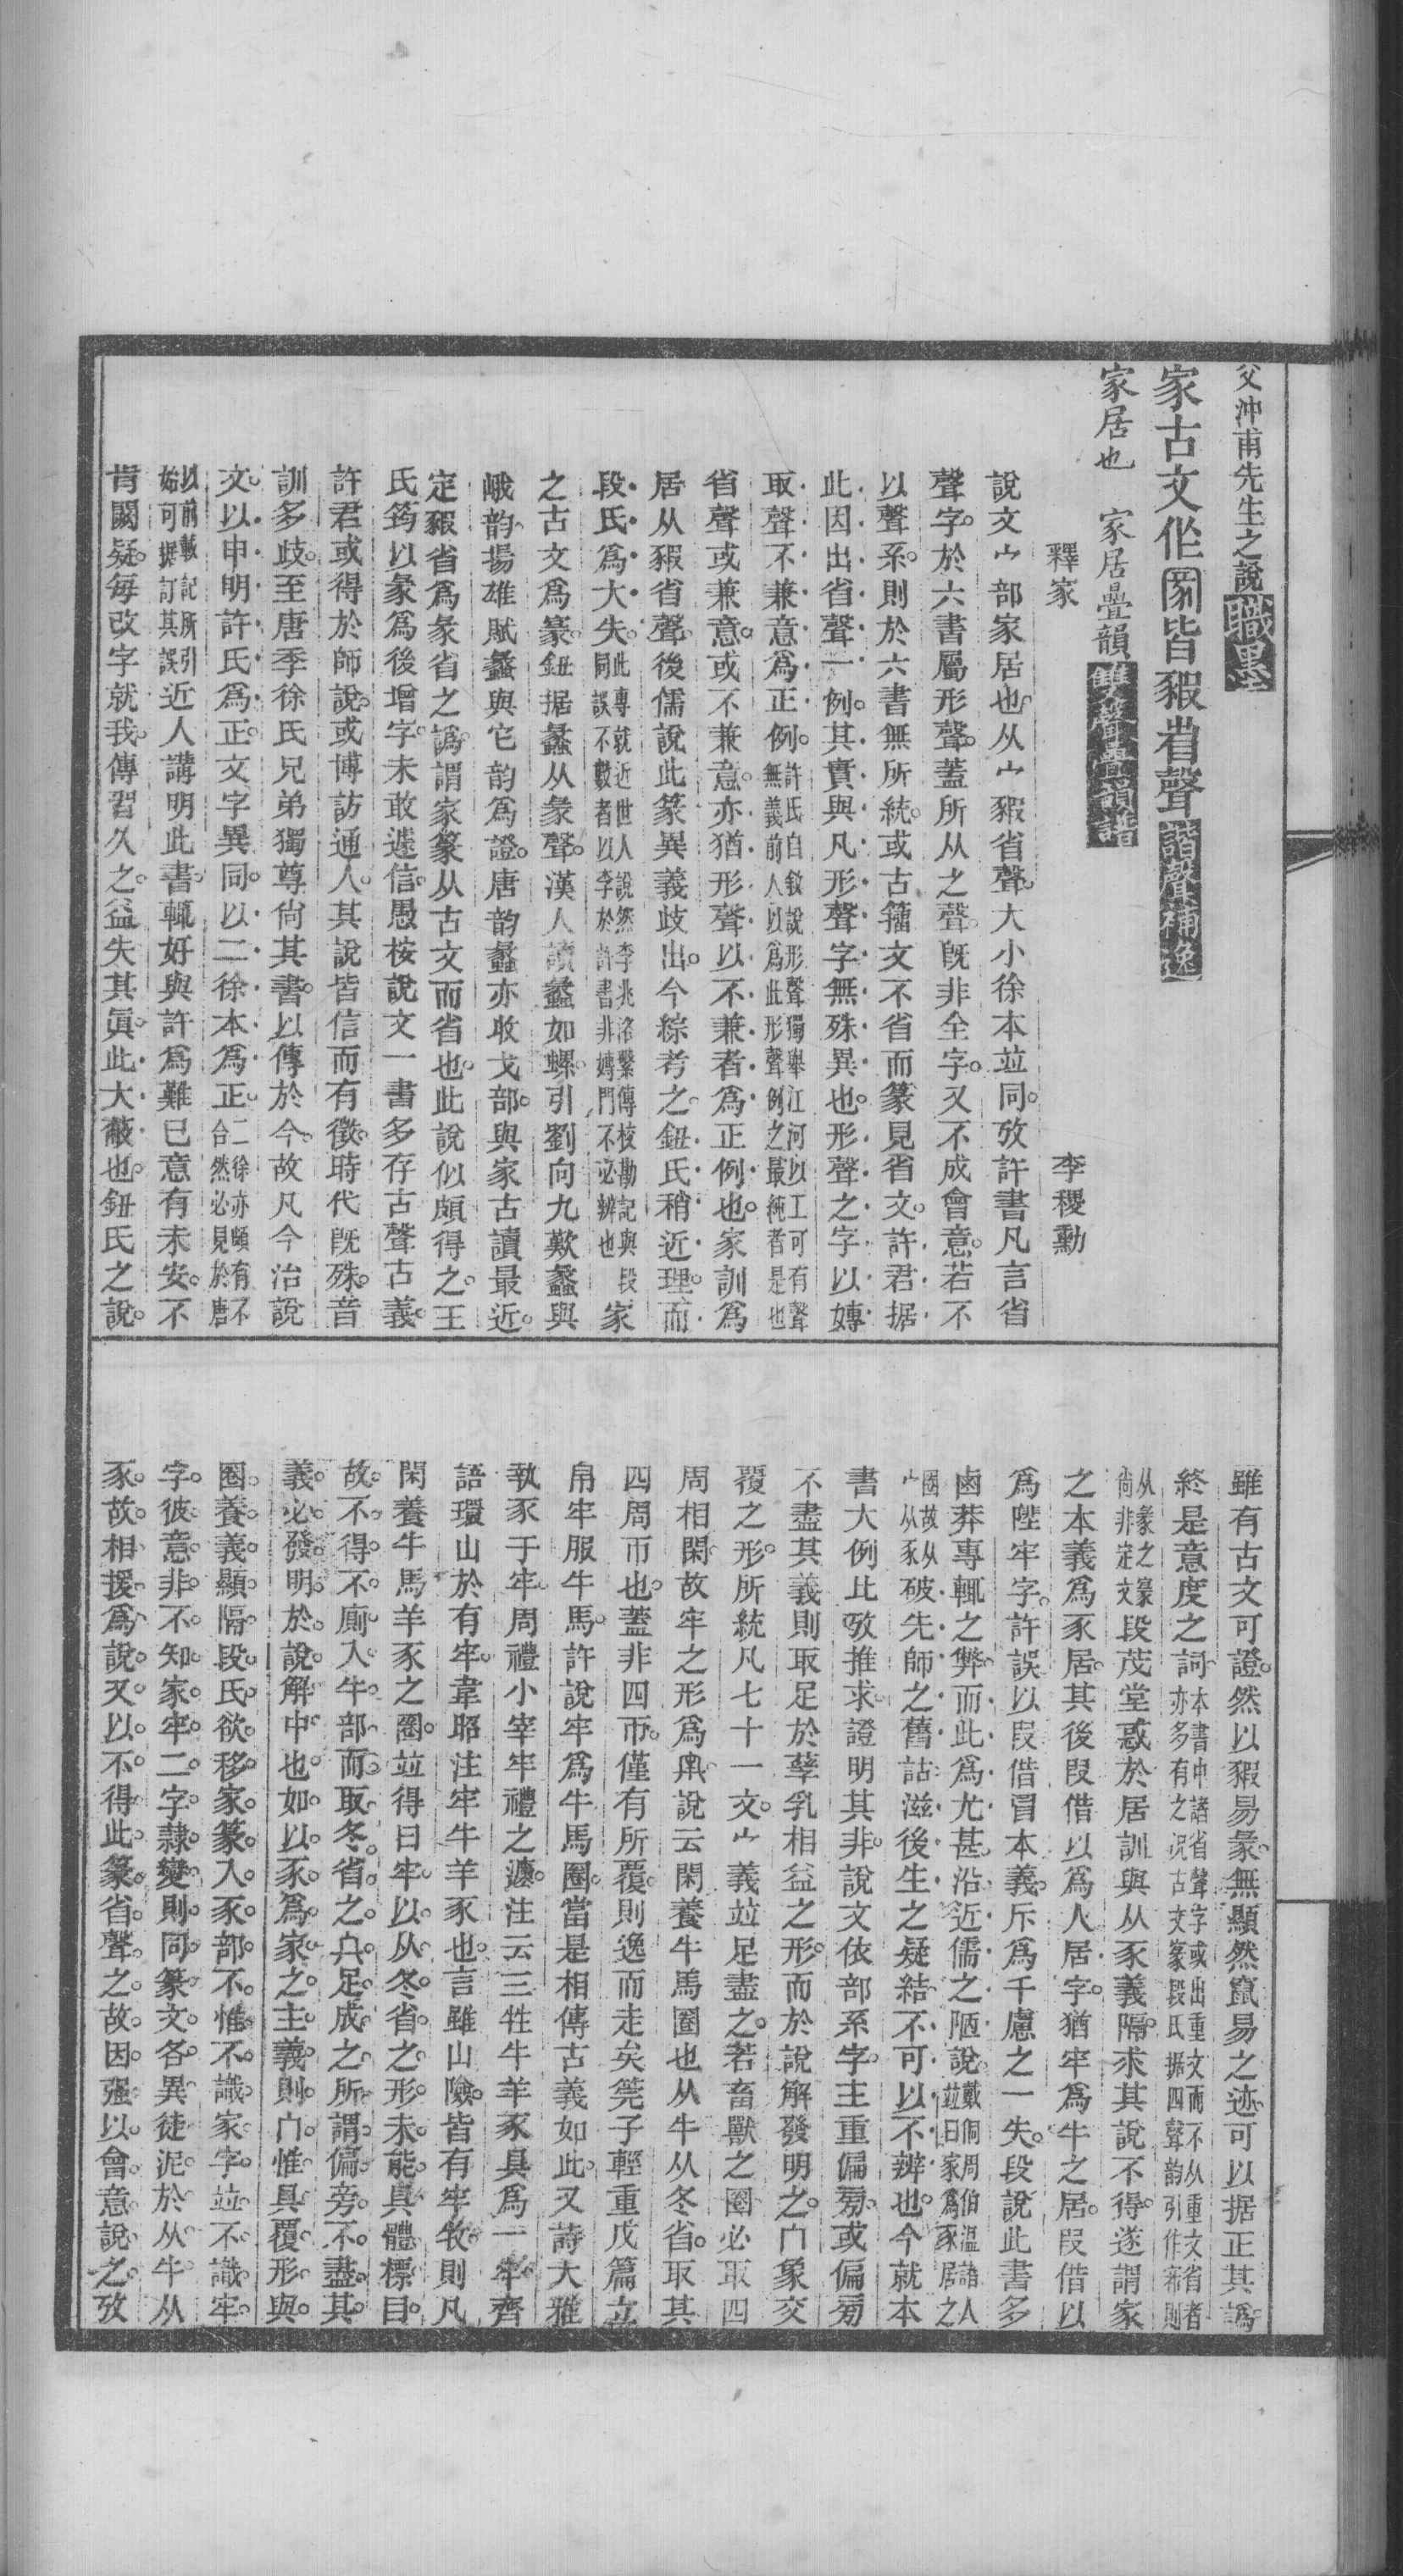 父沖甫先生之說職墨
家古文作𡩅皆豭省聲諧聲補逸
家居也　家居疊韻雙聲疊韻譜
釋家　李稷勳
說文宀部家居也从宀豭省聲大小徐本竝同攷許書凡言省
聲字於六書屬形聲蓋所从之聲旣非全字又不成會意若不
以聲系則於六書無所統或古籀文不省而篆見省文許君据
此因出省聲一例其實與凡形聲字無殊異也形聲之字以嫥
取聲不兼意爲正例許氏自敘說形聲獨舉江河以工可有聲無義前人以爲此形聲例之最純者是也
省聲或兼意或不兼意亦猶形聲以不兼者爲正例也家訓爲
居从豭省聲後儒說此篆異義歧出今綜考之鈕氏稍近理而
段氏爲大失此專就近世人說然李兆洛繫傳校勘記與段同誤不數者以李於許書非嫥門不必辨也家
之古文爲𧰲鈕据蠡从彖聲漢人讀蠡如螺引劉向九歎蠡與
峨韵揚雄賦蠡與它韵爲證唐韵蠡亦收戈部與家古讀最近
定豭省爲彖省之譌謂家篆从古文而省也此說似頗得之王
氏筠以彖爲後增字未敢遽信愚按說文一書多存古聲古義
許君或得於師說或博訪通人其說皆信而有徵時代旣殊音
訓多歧至唐季徐氏兄弟獨尊尙其書以傳於今故凡今治說
文以申明許氏爲正文字異同以二徐本爲正二徐亦頗有不合然必見於唐
以前載記所引始可据訂其誤近人講明此書輒好與許爲難已意有未安不
肯闕疑每改字就我傳習久之益失其眞此大蔽也鈕氏之說
雖有古文可證然以豭易彖無顯然竄易之迹可以据正其譌
終是意度之詞本書中諸省聲字或出重文而不从重文省者亦多有之況古文篆段氏据四聲韵引作𡩅則
从彖之篆尙非定文段茂堂惑於居訓與从豕義隔求其說不得遂謂家
之本義爲豕居其後叚借以爲人居字猶牢爲牛之居叚借以
爲陛牢字許誤以叚借冒本義斥爲千慮之一失段說此書多
鹵莽專輒之弊而此爲尤甚沿近儒之陋說戴侗周伯溫諸人竝曰家爲豕居之
圂故从宀从豕破先師之舊詁滋後生之疑結不可以不辨也今就本
書大例比攷推求證明其非說文依部系字主重偏旁或偏旁
不盡其義則取足於孳乳相益之形而於說解發明之冂象交
覆之形所統凡七十一文宀義竝足盡之若畜獸之圈必取四
周相閑故牢之形爲𤘫說云閑養牛馬圈也从牛从冬省取其
四周帀也蓋非四帀僅有所覆則逸而走矣筦子輕重戊篇立
帛牢服牛馬許說牢爲牛馬圈當是相傳古義如此又詩大雅
執豕于牢周禮小宰牢禮之灋注云三牲牛羊豕具爲一牢齊
語環山於有牢韋昭注牢牛羊豕也言雖山險皆有牢牧則凡
閑養牛馬羊豕之圈竝得曰牢以从冬省之形未能具體標目
故不得不廁入牛部而取冬省之𠔃足成之所謂偏旁不盡其
義必發明於說解中也如以豕爲家之主義則冂惟具覆形與
圈養義顯隔段氏欲移家篆入豕部不惟不識家字竝不識牢
字彼意非不知家牢二字隸變則同篆文各異徒泥於从牛从
豕故相援爲說又以不得此篆省聲之故因强以會意說之攷